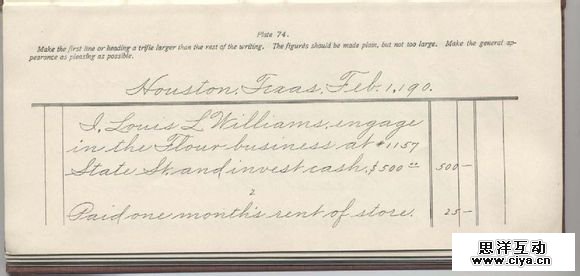 Plate 74.
Make the first line or heading a trifle larger than the rest of the writing. The figures should be made plain, but not too large. Make the general ap-
pearance as pleasing as possible.
Houston, Texas, Feb. 1, 190.
I, Louis L Williams, engage
in the Flour business at #1157
State St. and invest cash, $500 00 500 —
2
Paid one month's rent of store. 25 —
思洋互动
www.ciya.cn